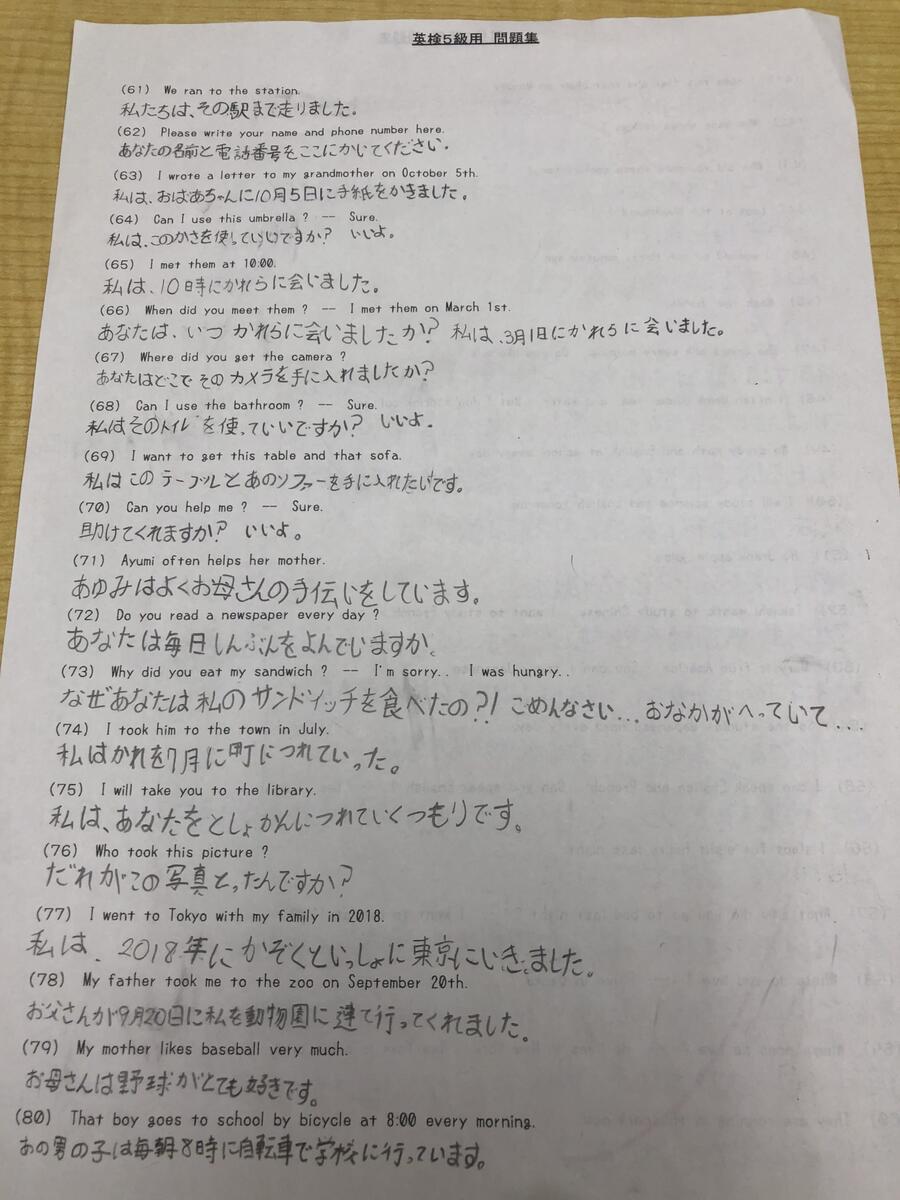 英検5級用 問題集
(61) We ran to the station.
私たちは、その駅まで走りました。
(62) Please write your name and phone number here.
あなたの名前と電話番号をここにかいてください。
(63) I wrote a letter to my grandmother on October 5th.
私は、おばあちゃんに10月5日に手紙をかきました。
(64) Can I use this umbrella ? -- Sure.
私は、このかさを使っていいですか? いいよ。
(65) I met them at 10:00.
私は、10時にかれらに会いました。
(66) When did you meet them ? -- I met them on March 1st.
あなたは、いつ かれらに会いましたか? 私は、3月1日にかれらに会いました。
(67) Where did you get the camera ?
あなたはどこでそのカメラを手に入れましたか?
(68) Can I use the bathroom ? -- Sure.
私はそのトイレを使っていいですか? いいよ。
(69) I want to get this table and that sofa.
私はこのテーブルとあのソファーを手に入れたいです。
(70) Can you help me ? -- Sure.
助けてくれますか? いいよ。
(71) Ayumi often helps her mother.
あゆみはよくお母さんの手伝いをしています。
(72) Do you read a newspaper every day ?
あなたは毎日しんぶんをよんでいますか。
(73) Why did you eat my sandwich ? -- I'm sorry.. I was hungry..
なぜあなたは私のサンドイッチを食べたの?! ごめんなさい... おなかがへっていて...
(74) I took him to the town in July.
私はかれを7月に町につれていった。
(75) I will take you to the library.
私は、あなたをとしょかんにつれていくつもりです。
(76) Who took this picture ?
だれがこの写真とったんですか?
(77) I went to Tokyo with my family in 2018.
私は、2018年にかぞくといっしょに東京にいきました。
(78) My father took me to the zoo on September 20th.
お父さんが9月20日に私を動物園に連て行ってくれました。
(79) My mother likes baseball very much.
お母さんは野球がとても好きです。
(80) That boy goes to school by bicycle at 8:00 every morning.
あの男の子は毎朝8時に自転車で学校に行っています。